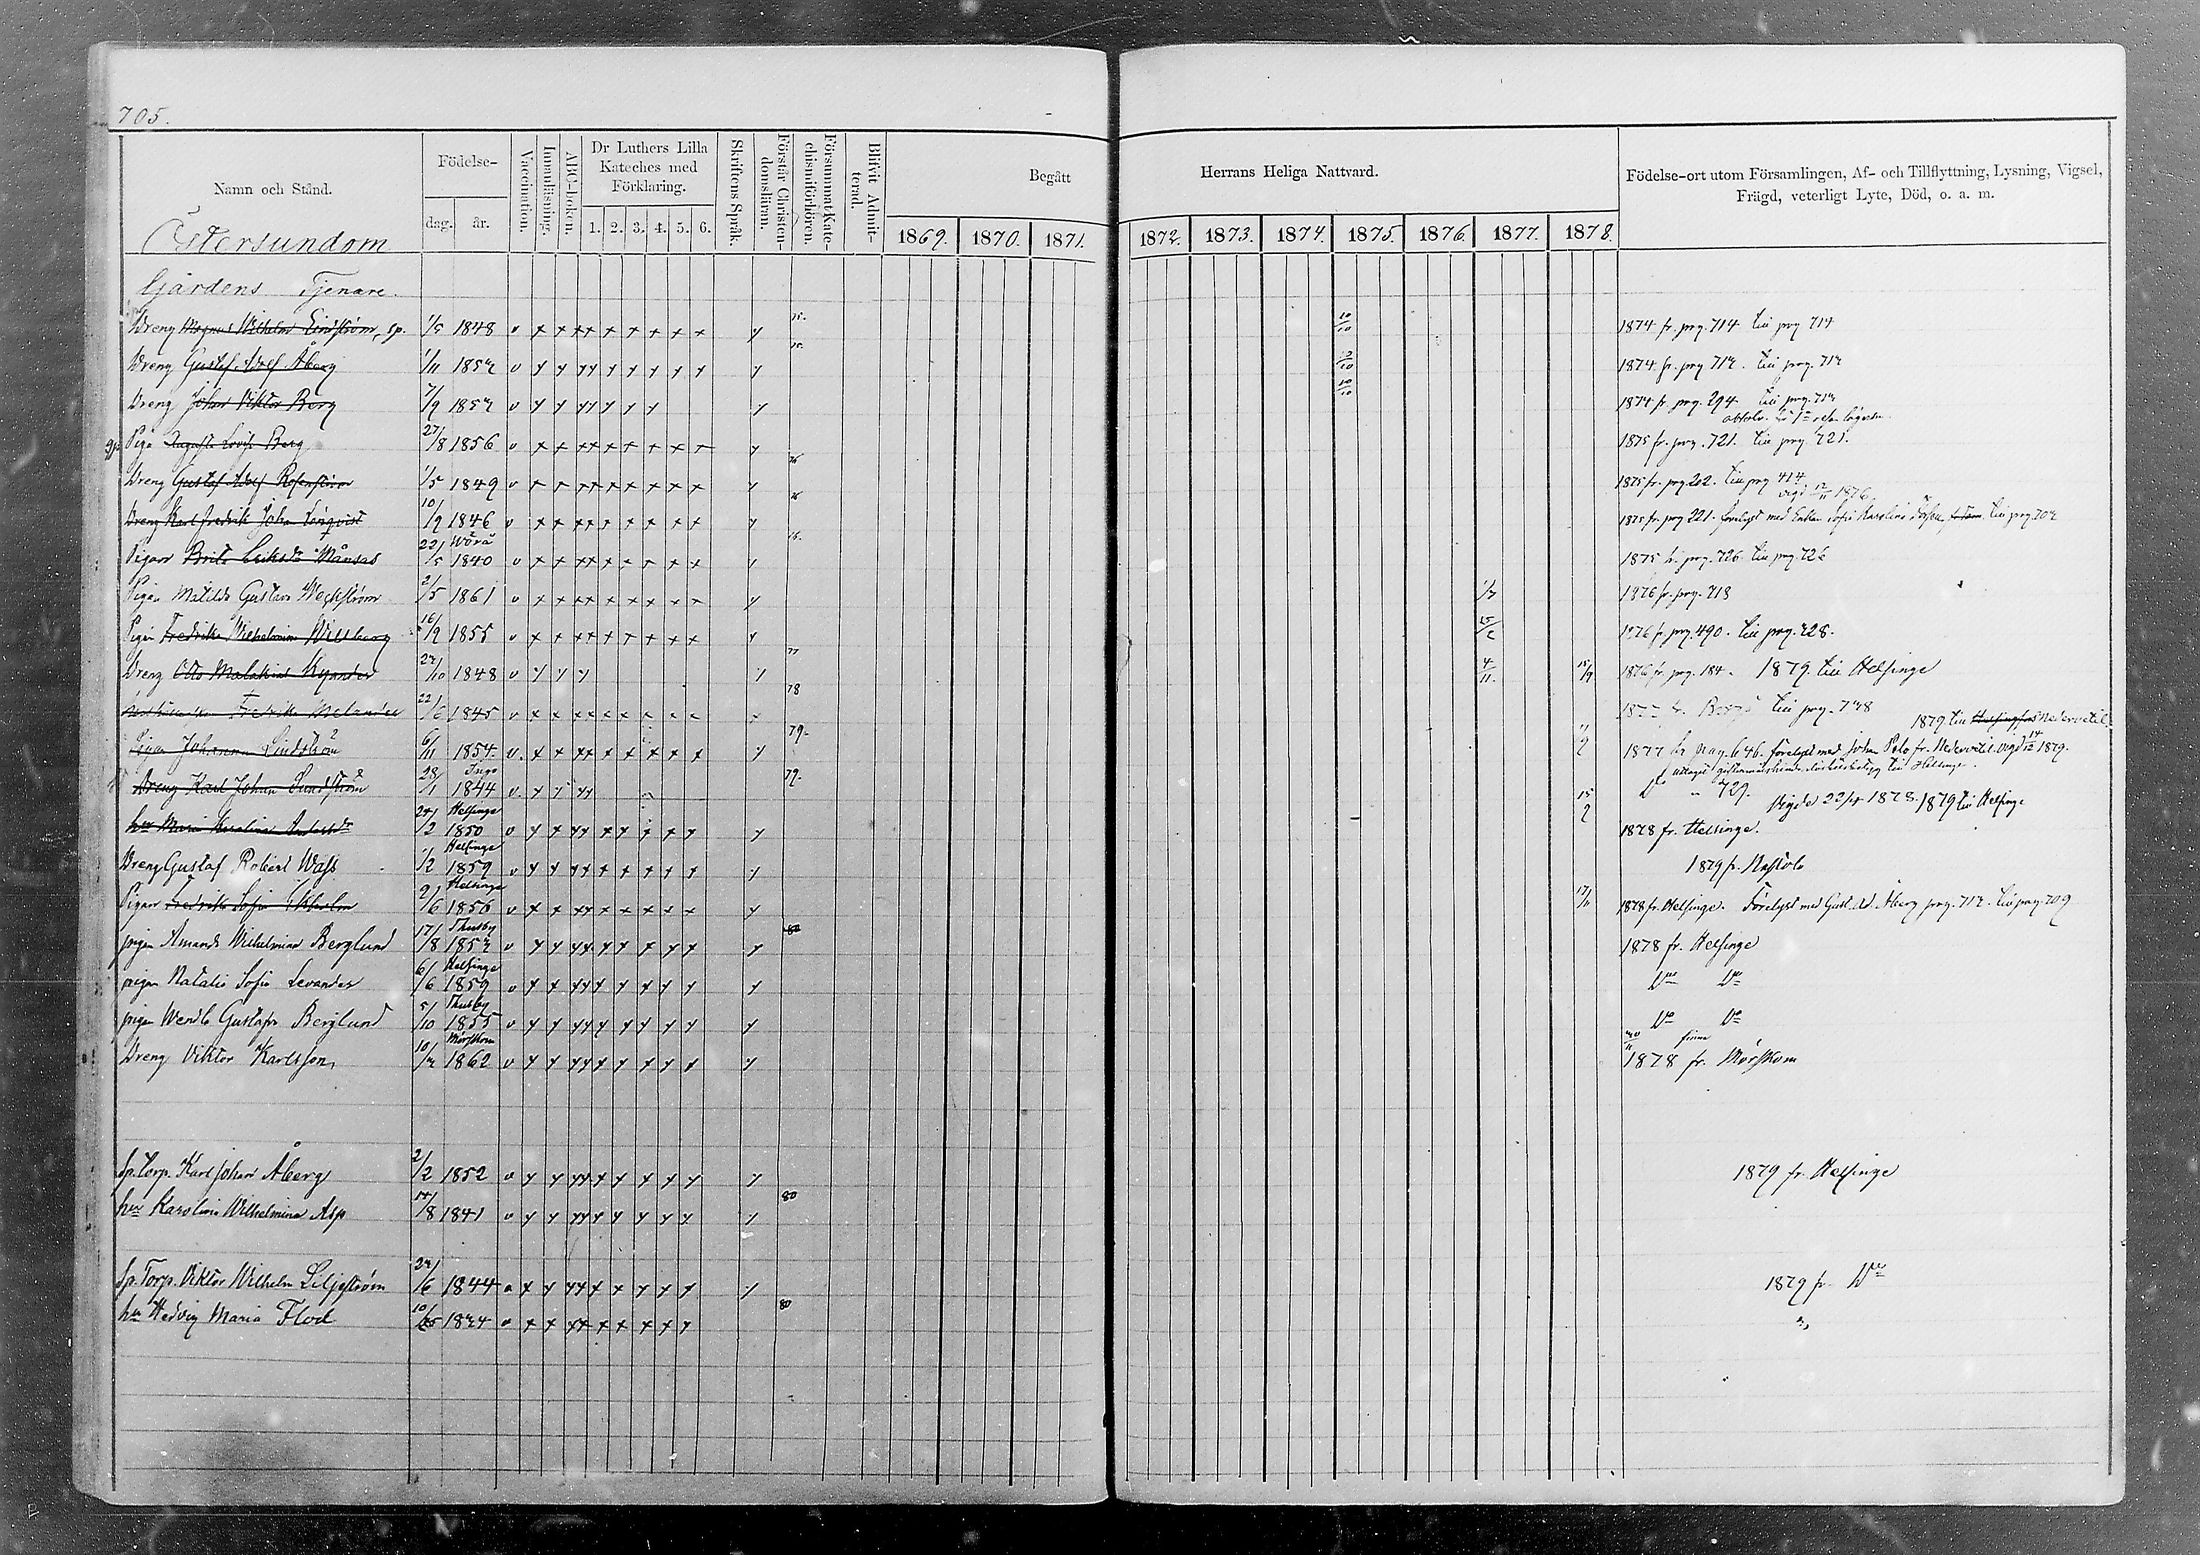 705.
Namn och Stånd.
Födelse-
dag.
år.
Vaccination.
Innanläsning.
ABC-boken.
Dr Luthers Lilla
Kateches med
Förklaring.
1. 2. 3. 4. 5. 6.
Skriftens Språk.
Förstår Christen-
domsläran.
Försummat Kate-
chismiförhören.
Blifvit Admit-
terad.
Begått
Herrans Heliga Nattvard.
1869. 1870. 1871. 1872. 1873. 1874. 1875. 1876. 1877. 1878.
Födelse-ort utom Församlingen, Af- och Tillflyttning, Lysning, Vigsel,
Frägd, veterligt Lyte, Död, o. a. m.
Östersundom
Gårdens Tjenare.
Dreng Magnus Wilhelm Lindström, sp. 1/5 1848 1874 fr. pag. 714 till pag 714
Dreng Gustaf Adolf Åberg 1/11 1852 1874 fr. pag 712. till pag. 712
Dreng Johan Viktor Berg 7/9 1852 1874 fr. pag. 294 till pag. 712
Piga Augusta Lovisa Berg 27/8 1856 1875 fr. pag. 721. till pag. 721.
Dreng Gustaf Adolf Rosenström 1/5 1849 1875 fr. pag. 202. till pag 414
vigd 12/11 1876.
Dreng Karl Fredrik Johan 10/9 1846 1875 fr. pag 221. förelyst med Enkan Sofia Karolina till pag. 702
Pigan Brita Eriksdr Månsas 22/5 Wörå 1840 1875 fr. pag. 726 till pag. 726
Pigan Matilda Gustava Weckström 2/5 1861 1876 fr. pag. 718
Pigan Fredrika Wilhelmina Willberg 16/9 1855 25/2 1876 fr. pag. 490. till pag. 728.
Dreng Otto Malakias Kyander 27/10 1848 4/11 1876 fr. pag. 184. 1879 till Helsinge
Fredrika Melander 22/6 1845 78 till pag. 728
1879 till Helsingfors Nedervetil
Pigan Johanna Lindström 6/11 1854. 79. 1877 fr. pag. 646. förelyst med Johan Pelo fr. Nedervetil. vigd 14/12 1879.
Dreng Karl Johan Sundström 28/1 Ingo 1844 79. Do " 729.
Vigde 22/4 1878. 1879 till Helsinge
hu Maria Karolina Andersdr 24/2 Helsinge 1850 1878 fr. Helsinge.
Dreng Gustaf Robert Wass 1/2 Helsinge 1859 1879 fr.
Pigan Fredrika Sofia Ekholm 9/6 Helsinge 1856 17/11 1878 fr. Helsinge. Förelyst med Gust. Ad. Åberg pag. 712. till pag. 709
pigan Amanda Wilhelmina Berglund 17/8 Thusby 1852 80 1878 fr. Helsinge
pigan Natalia Sofia Levander 6/6 Helsinge 1859 Do Do
pigan Wendla Gustafva Berglund 5/10 Thusby 1855 Do Do
Dreng Viktor Karlsson 10/2 Mörskom 1862 1878 fr. Mörskom
Sp. Torp. Karl Johan Åberg 2/2 1852 1879 fr. Helsinge
hu Karolina Wilhelmina Asp 14/8 1841 80
Sp. Torp. Viktor Wilhelm Liljeström 24/6 1844 1879 fr. Do
hu Hedvig Maria Flod 1844 80 "